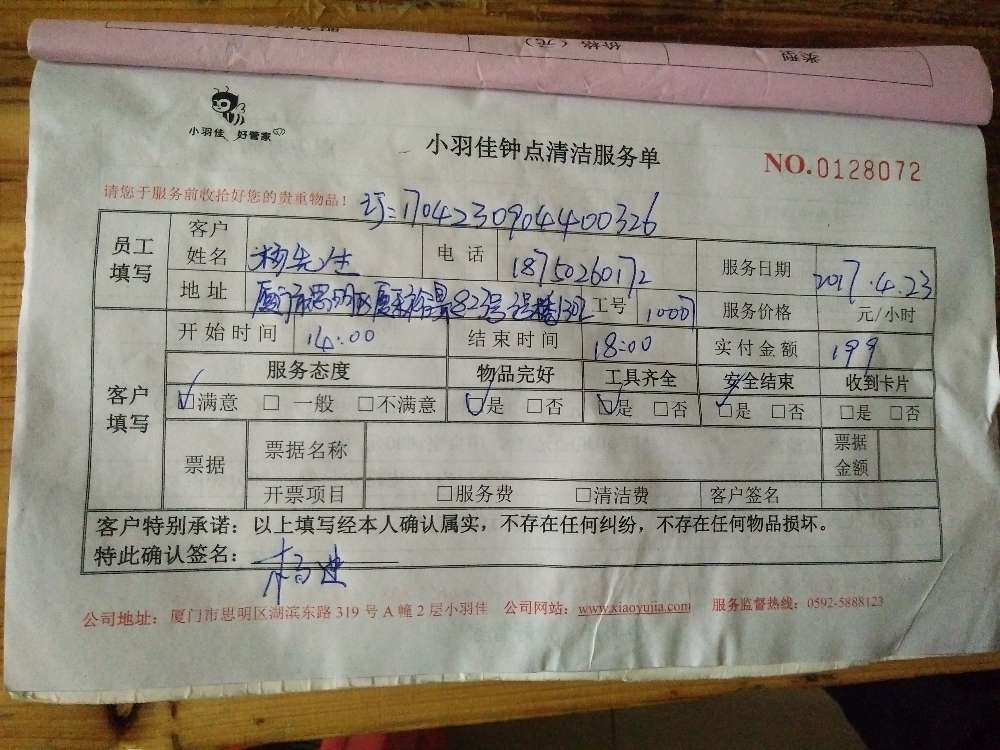 类型 价格（元）
小羽佳 好管家
小羽佳钟点清洁服务单
NO.0128072
请您于服务前收拾好您的贵重物品！
1704230904400326
员工填写 客户姓名 杨先生 电话 18750260172 服务日期 2017.4.23
地址 厦门市思明区 82号 1302 工号 1000 服务价格 元/小时
客户填写 开始时间 14:00 结束时间 18:00 实付金额 199
服务态度 物品完好 工具齐全 安全结束 收到卡片
☑满意 □一般 □不满意 ☑是 □否 ☑是 □否 ☑是 □否 □是 □否
票据 票据名称 票据金额
开票项目 □服务费 □清洁费 客户签名
客户特别承诺：以上填写经本人确认属实，不存在任何纠纷，不存在任何物品损坏。
特此确认签名：杨
公司地址：厦门市思明区湖滨东路 319 号 A 幢 2 层小羽佳 公司网站：www.xiaoyujia.com 服务监督热线：0592-5888123